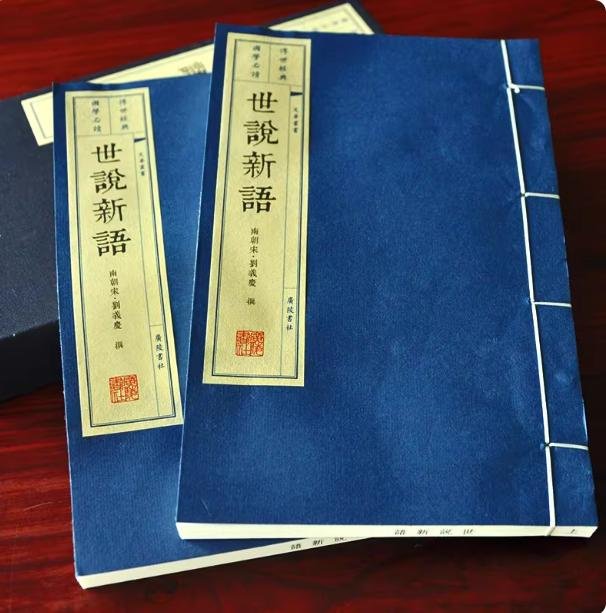 傳世經典
國學必讀
文華叢書
世說新語
南朝宋·劉義慶 撰
廣陵書社
世說新語
上
傳世經典
國學必讀
文華叢書
世說新語
南朝宋·劉義慶 撰
廣陵書社
說新語